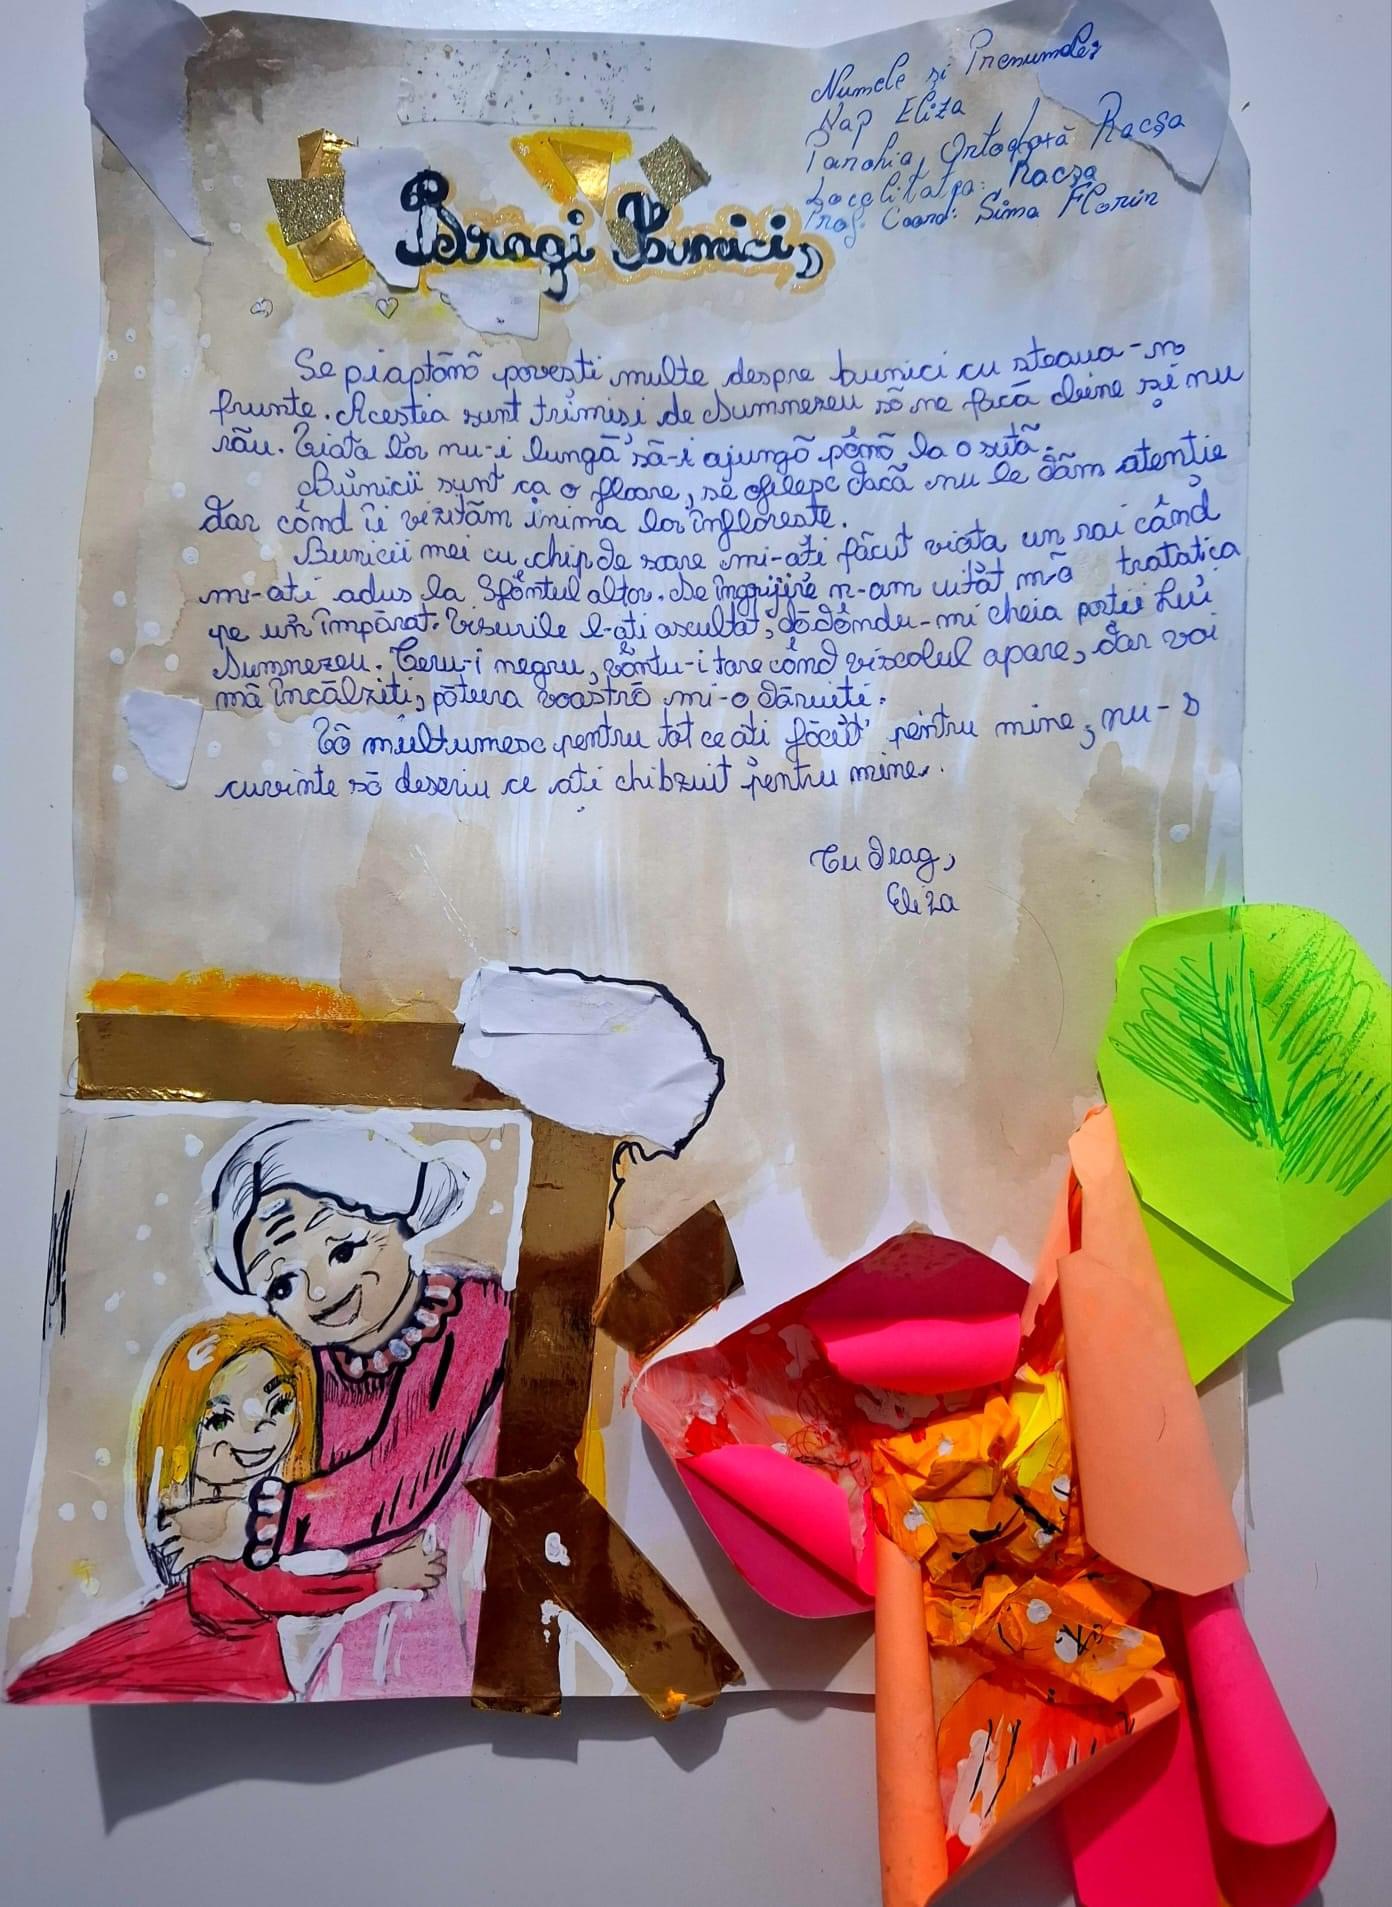 Numele și Prenumele:
Nap Eliza
Parohia Ortodoxă Racșa
Localitatea: Racșa
Prof. Coord: Sima Florin
Dragi Bunici,
Se piaptănă povești multe despre bunici cu steaua-n
frunte. Aceștia sunt trimiși de Dumnezeu să ne facă bine și nu
rău. Viața lor nu-i lungă să-i ajungă pănă la o sută.
Bunicii sunt ca o floare, se ofilesc dacă nu le dăm atenție
dar cînd îi vizităm inima lor înflorește.
Bunicii mei cu chip de soare mi-ați făcut viața un rai când
mi-ați adus la Sfântul altar. De îngrijire n-am uitat mă tratatica
pe un împărat. Visurile l-ați ascultat, dădându-mi cheia porții Lui
Dumnezeu. Ceru-i negru, vântu-i tare când viscolul apare, dar voi
mă încălziți, pătura voastră mi-o dăruiți.
Vă mulțumesc pentru tot ce ați făcut pentru mine, nu-s
cuvinte să descriu ce ați chibzuit pentru mine.
Cu drag,
Eliza